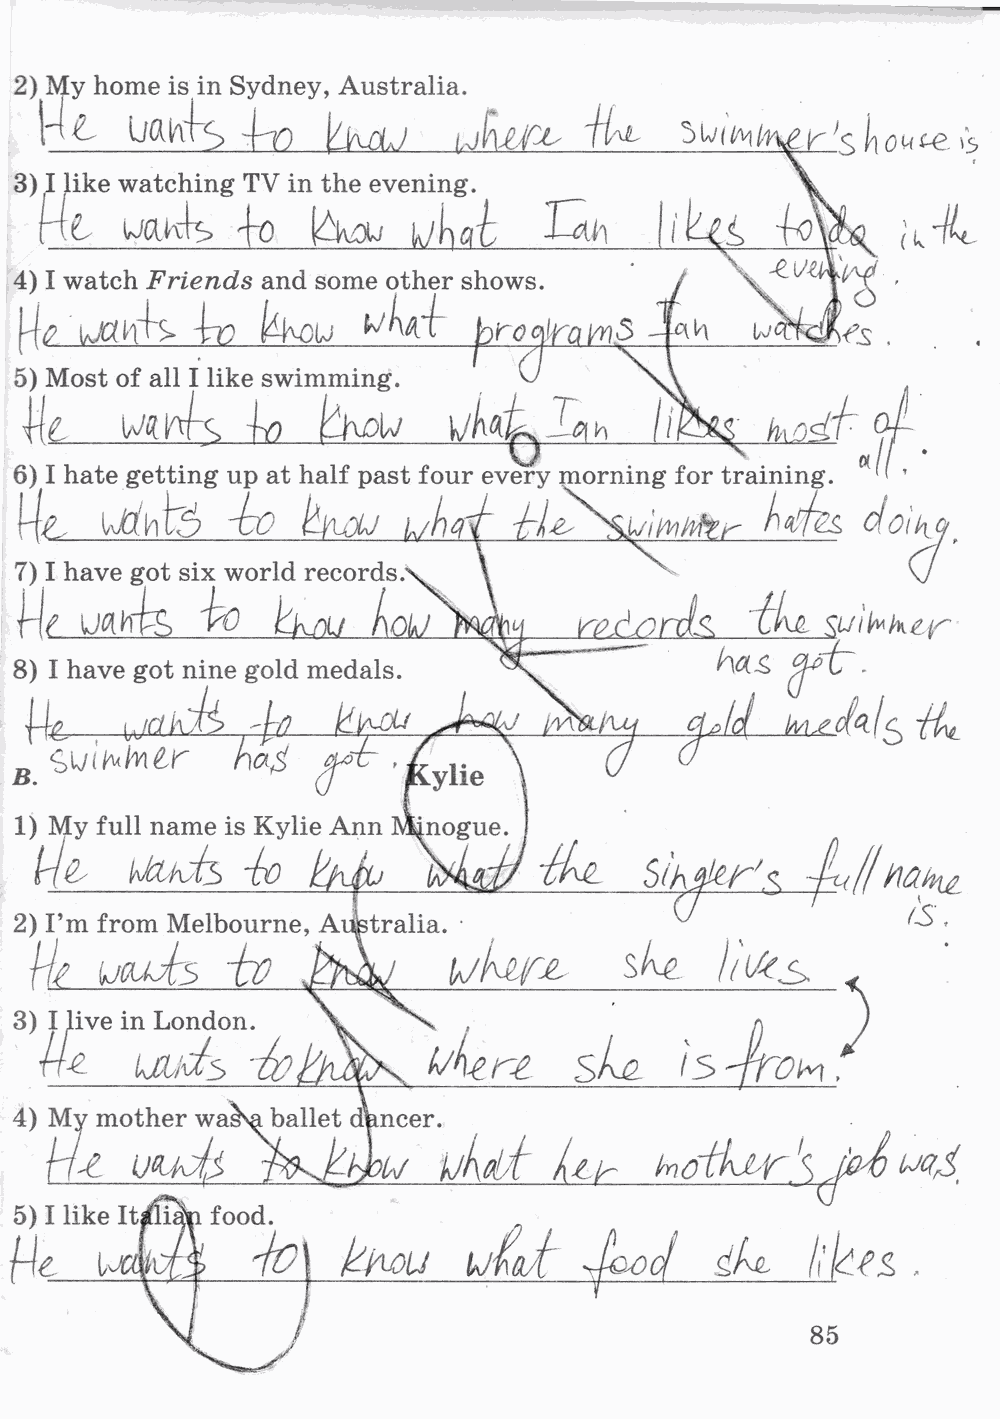 2) My home is in Sydney, Australia.
He wants to know where the swimmer's house is.
3) I like watching TV in the evening.
He wants to know what Ian likes to do in the
evening.
4) I watch Friends and some other shows.
He wants to know what programs Ian watches.
5) Most of all I like swimming.
He wants to know what Ian likes most of
all.
6) I hate getting up at half past four every morning for training.
He wants to know what the swimmer hates doing.
7) I have got six world records.
He wants to know how many records the swimmer
has got.
8) I have got nine gold medals.
He wants to know how many gold medals the
swimmer has got.
B. Kylie
1) My full name is Kylie Ann Minogue.
He wants to know what the singer's full name
is.
2) I'm from Melbourne, Australia.
He wants to know where she lives
3) I live in London.
He wants to know where she is from.
4) My mother was a ballet dancer.
He wants to know what her mother's job was.
5) I like Italian food.
He wants to know what food she likes.
85